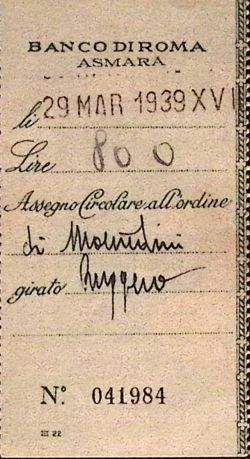 BANCO DI ROMA
ASMARA
li 29 MAR 1939 XVI
Lire 800
Assegno Circolare all'ordine
di
girato Ruggero
N.o 041984
III 22